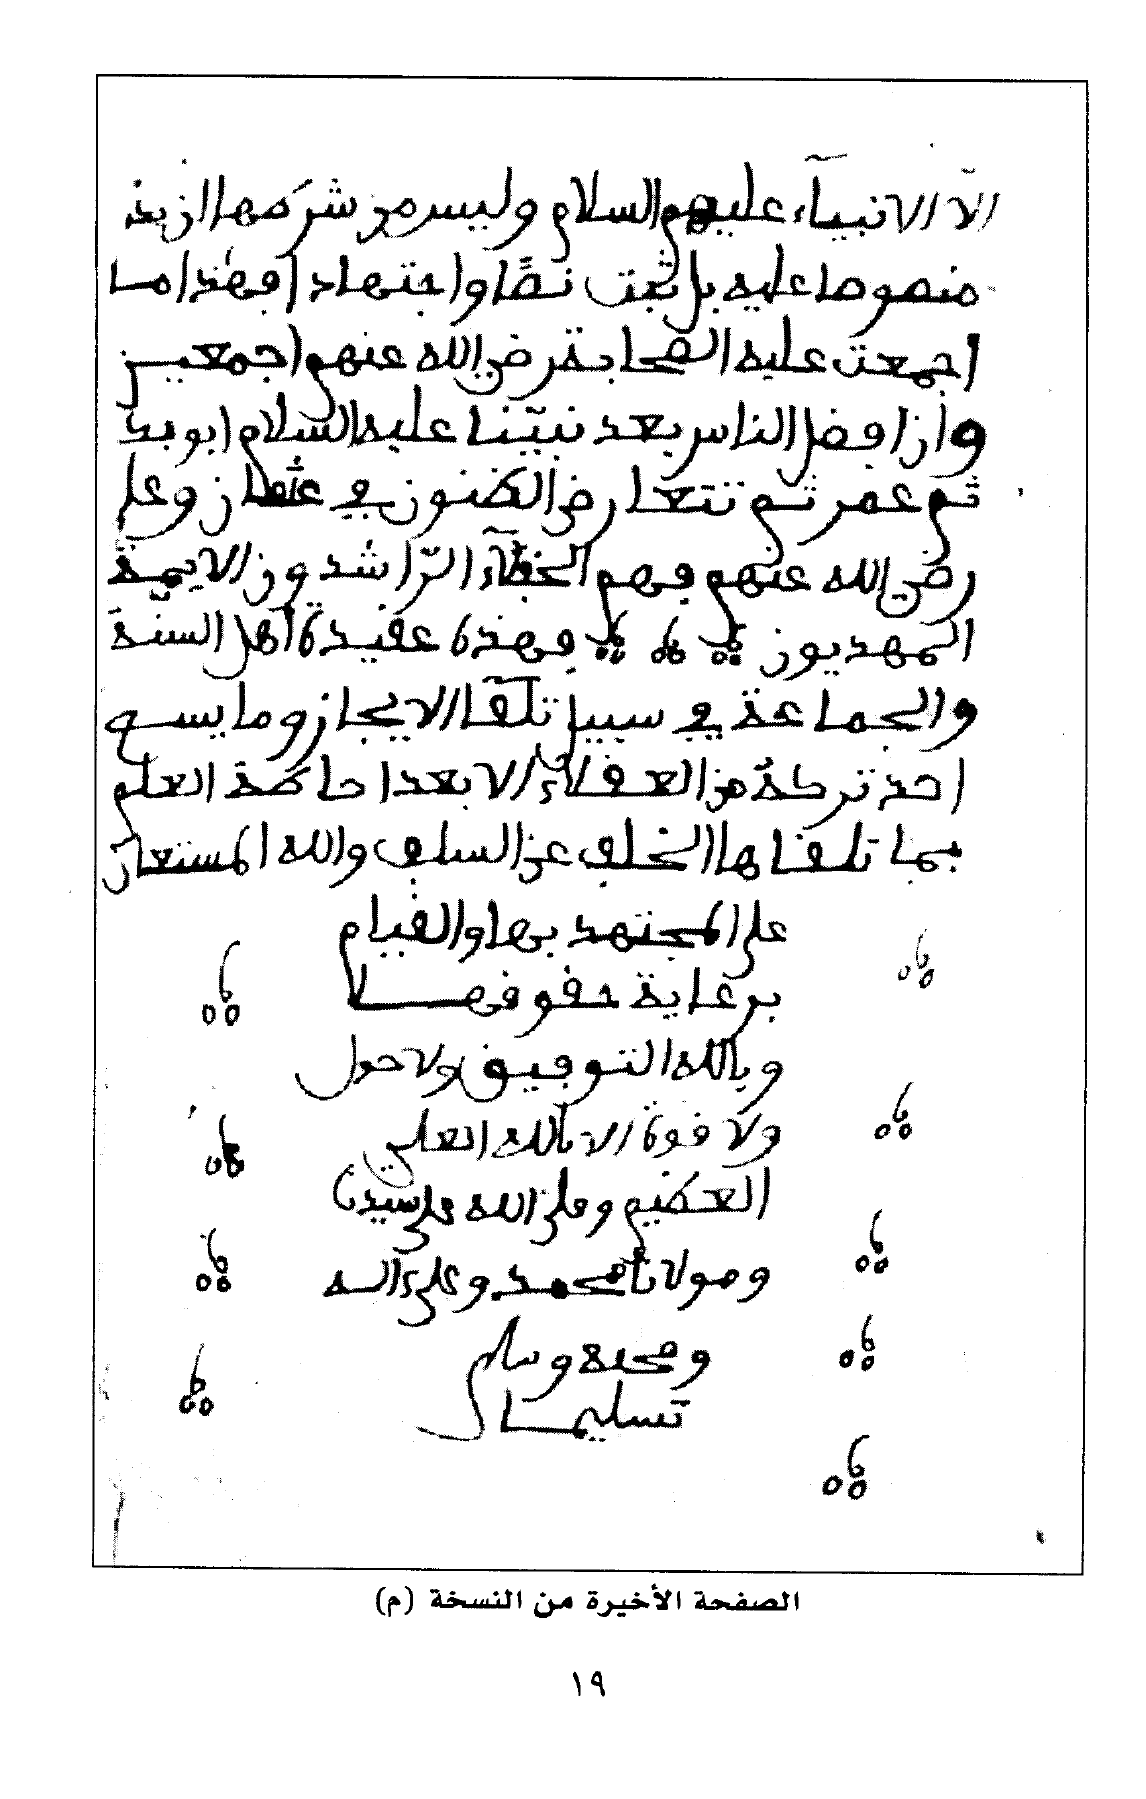 الا الانبيآء عليهم السلام وليس من شرطها ان يكون
منصوصا عليه بل تثبت نصًا واجتهادا فهذا ما
اجمعت عليه الصحابة رضي الله عنهم اجمعين
وان افضل الناس بعد نبيّنا عليه السلام ابو بكر
ثم عمر ثم تتعارض الظنون في عثمان وعلي
رضي الله عنهم فهم الخلفآء الرّاشدون الايمة
المهديون فهذه عقيدة أهل السنة
والجماعة في سبيل تلقآ الايجاز وما يسع
احد تركه من العقلاء الا بعد احاطة العلم
بما تلقاها الخلف عن السلف والله المستعان
على المجتهد بها والقيام
برعاية حقوقها
وبالله التوفيق ولا حول
ولا قوة الا بالله العلي
العظيم وصلى الله على سيدنا
ومولانا محمد وعلى ءاله
وصحبه وسلم
تسليما
الصفحة الأخيرة من النسخة (م)
١٩